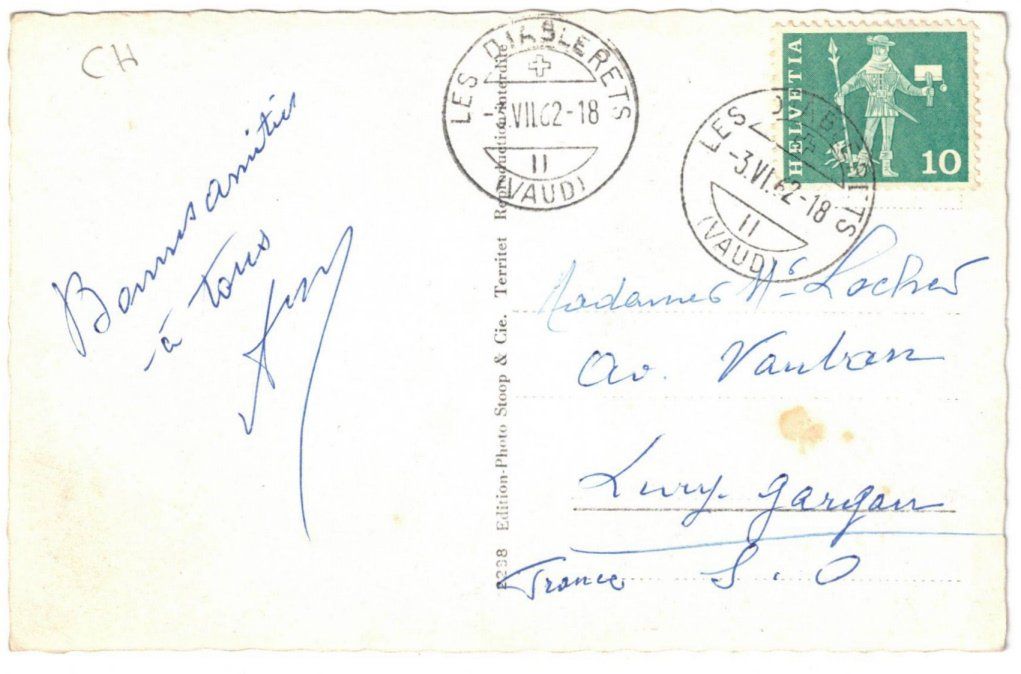 CH
Bonnes amitiés
à tous
LES DIABLERETS
VII.62-18
II
(VAUD)
HELVETIA
10
LES DIABLERETS
-3.VI.62-18
II
(VAUD)
Edition-Photo Stoop & Cie. Territet Reproduction interdite
Madame M. Locher
Av. Vauban
Livry-Gargan
France S. O